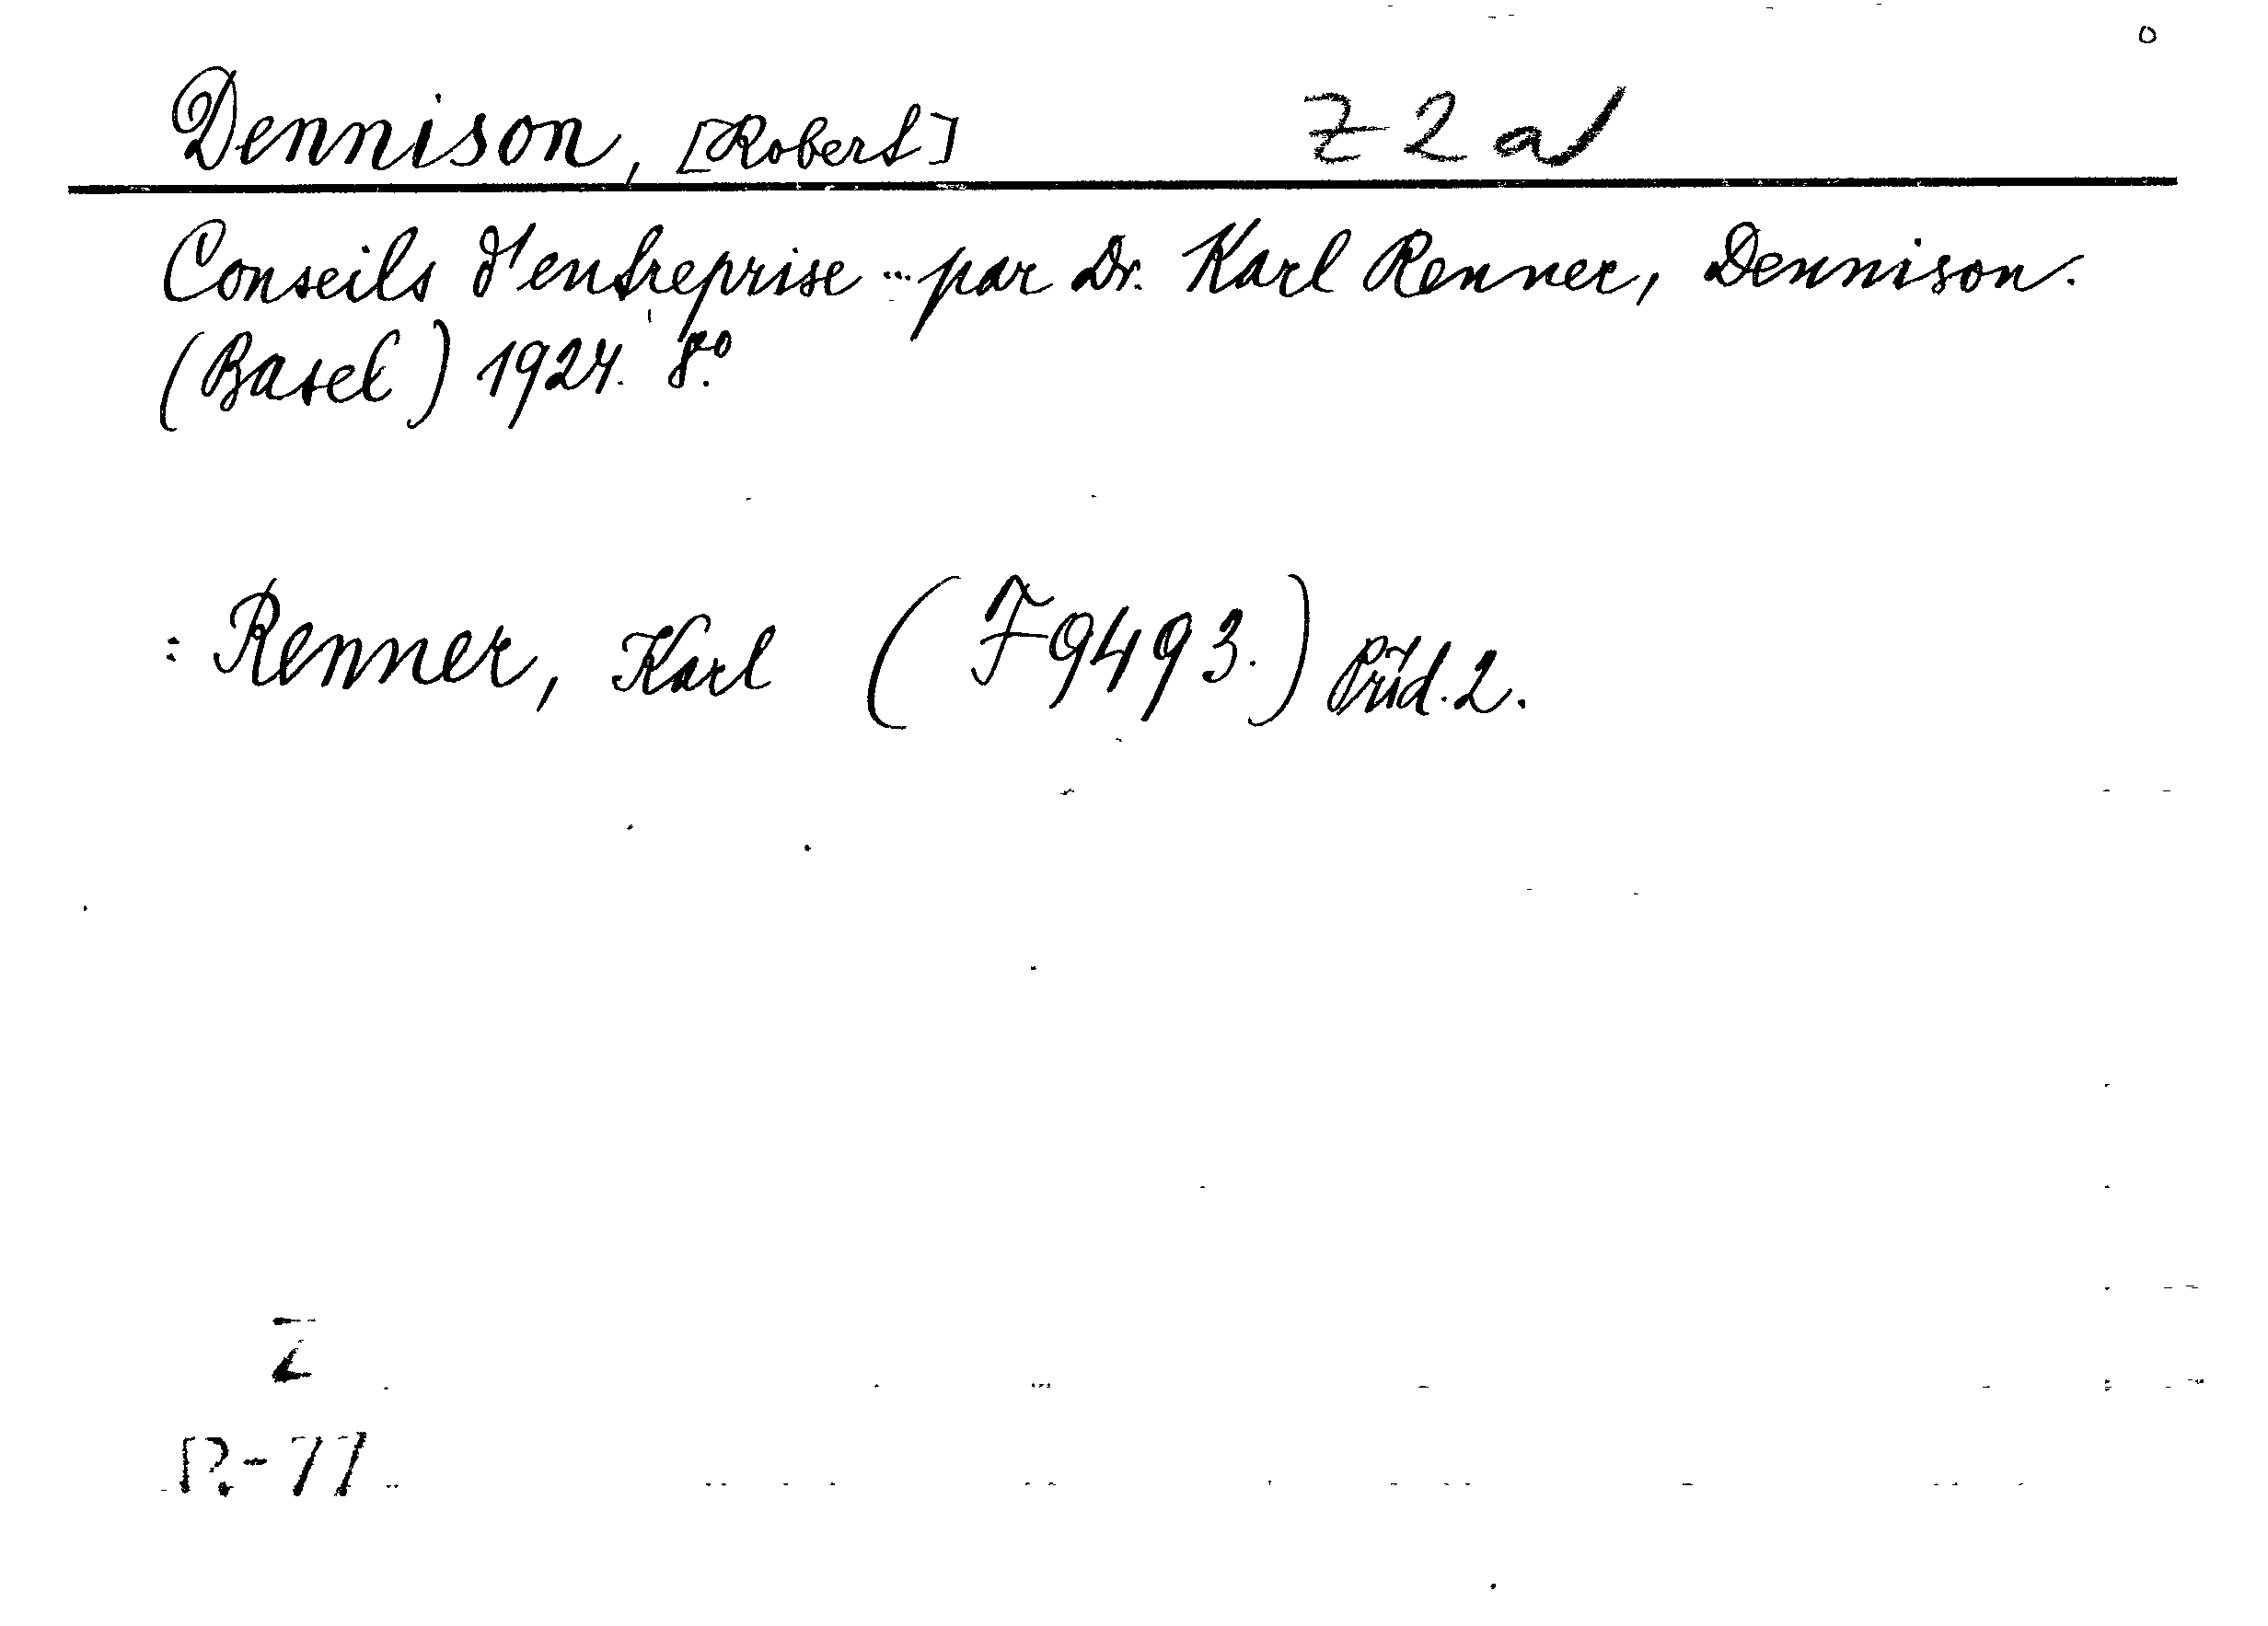 Dennison, [Robert] Z 2 a
Conseils d'entreprise ... par Dr. Karl Renner, Dennison.
(Basel) 1924. 8.°
: Renner, Karl (F 9493.) Prid. 2.
Z
P.-77